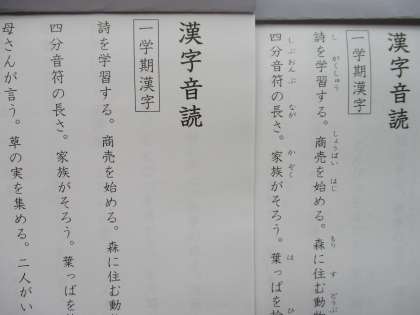 漢字音読
一学期漢字
詩を学習する。商売を始める。森に住む動
四分音符の長さ。家族がそろう。葉っぱを
母さんが言う。草の実を集める。二人がい
漢字音読
一学期漢字
詩を学習する。商売を始める。森に住む動
し がくしゅう しょうばい はじ もり す どうぶ
四分音符の長さ。家族がそろう。葉っぱを
しぶおんぷ なが かぞく は ひ